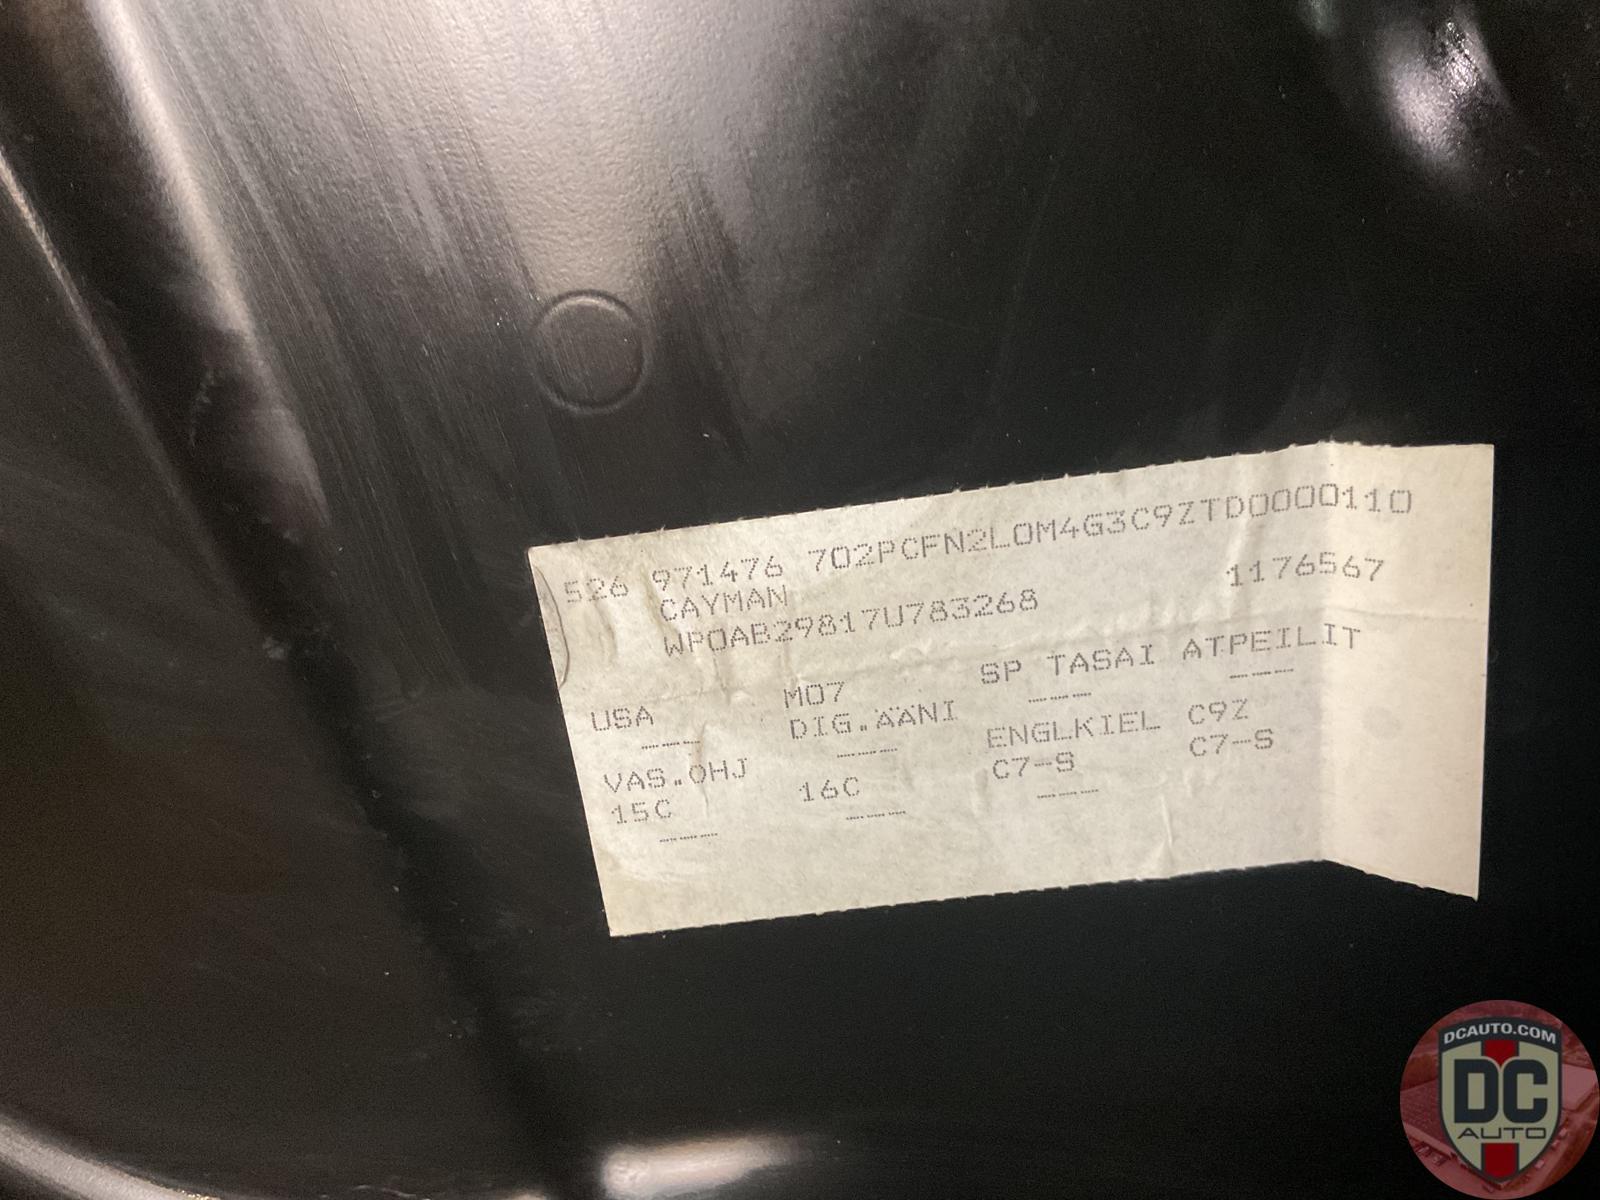 526 971476 702PCFN2L0M4G3C9ZTD0000110
CAYMAN 1176567
WP0AB29817U783268
USA M07 SP TASAI ATPEILIT
--- DIG.ÄÄNI --- ---
VAS.OHJ --- ENGLKIEL C9Z
15C 16C C7-S C7-S
--- --- ---
DCAUTO.COM
DC
AUTO